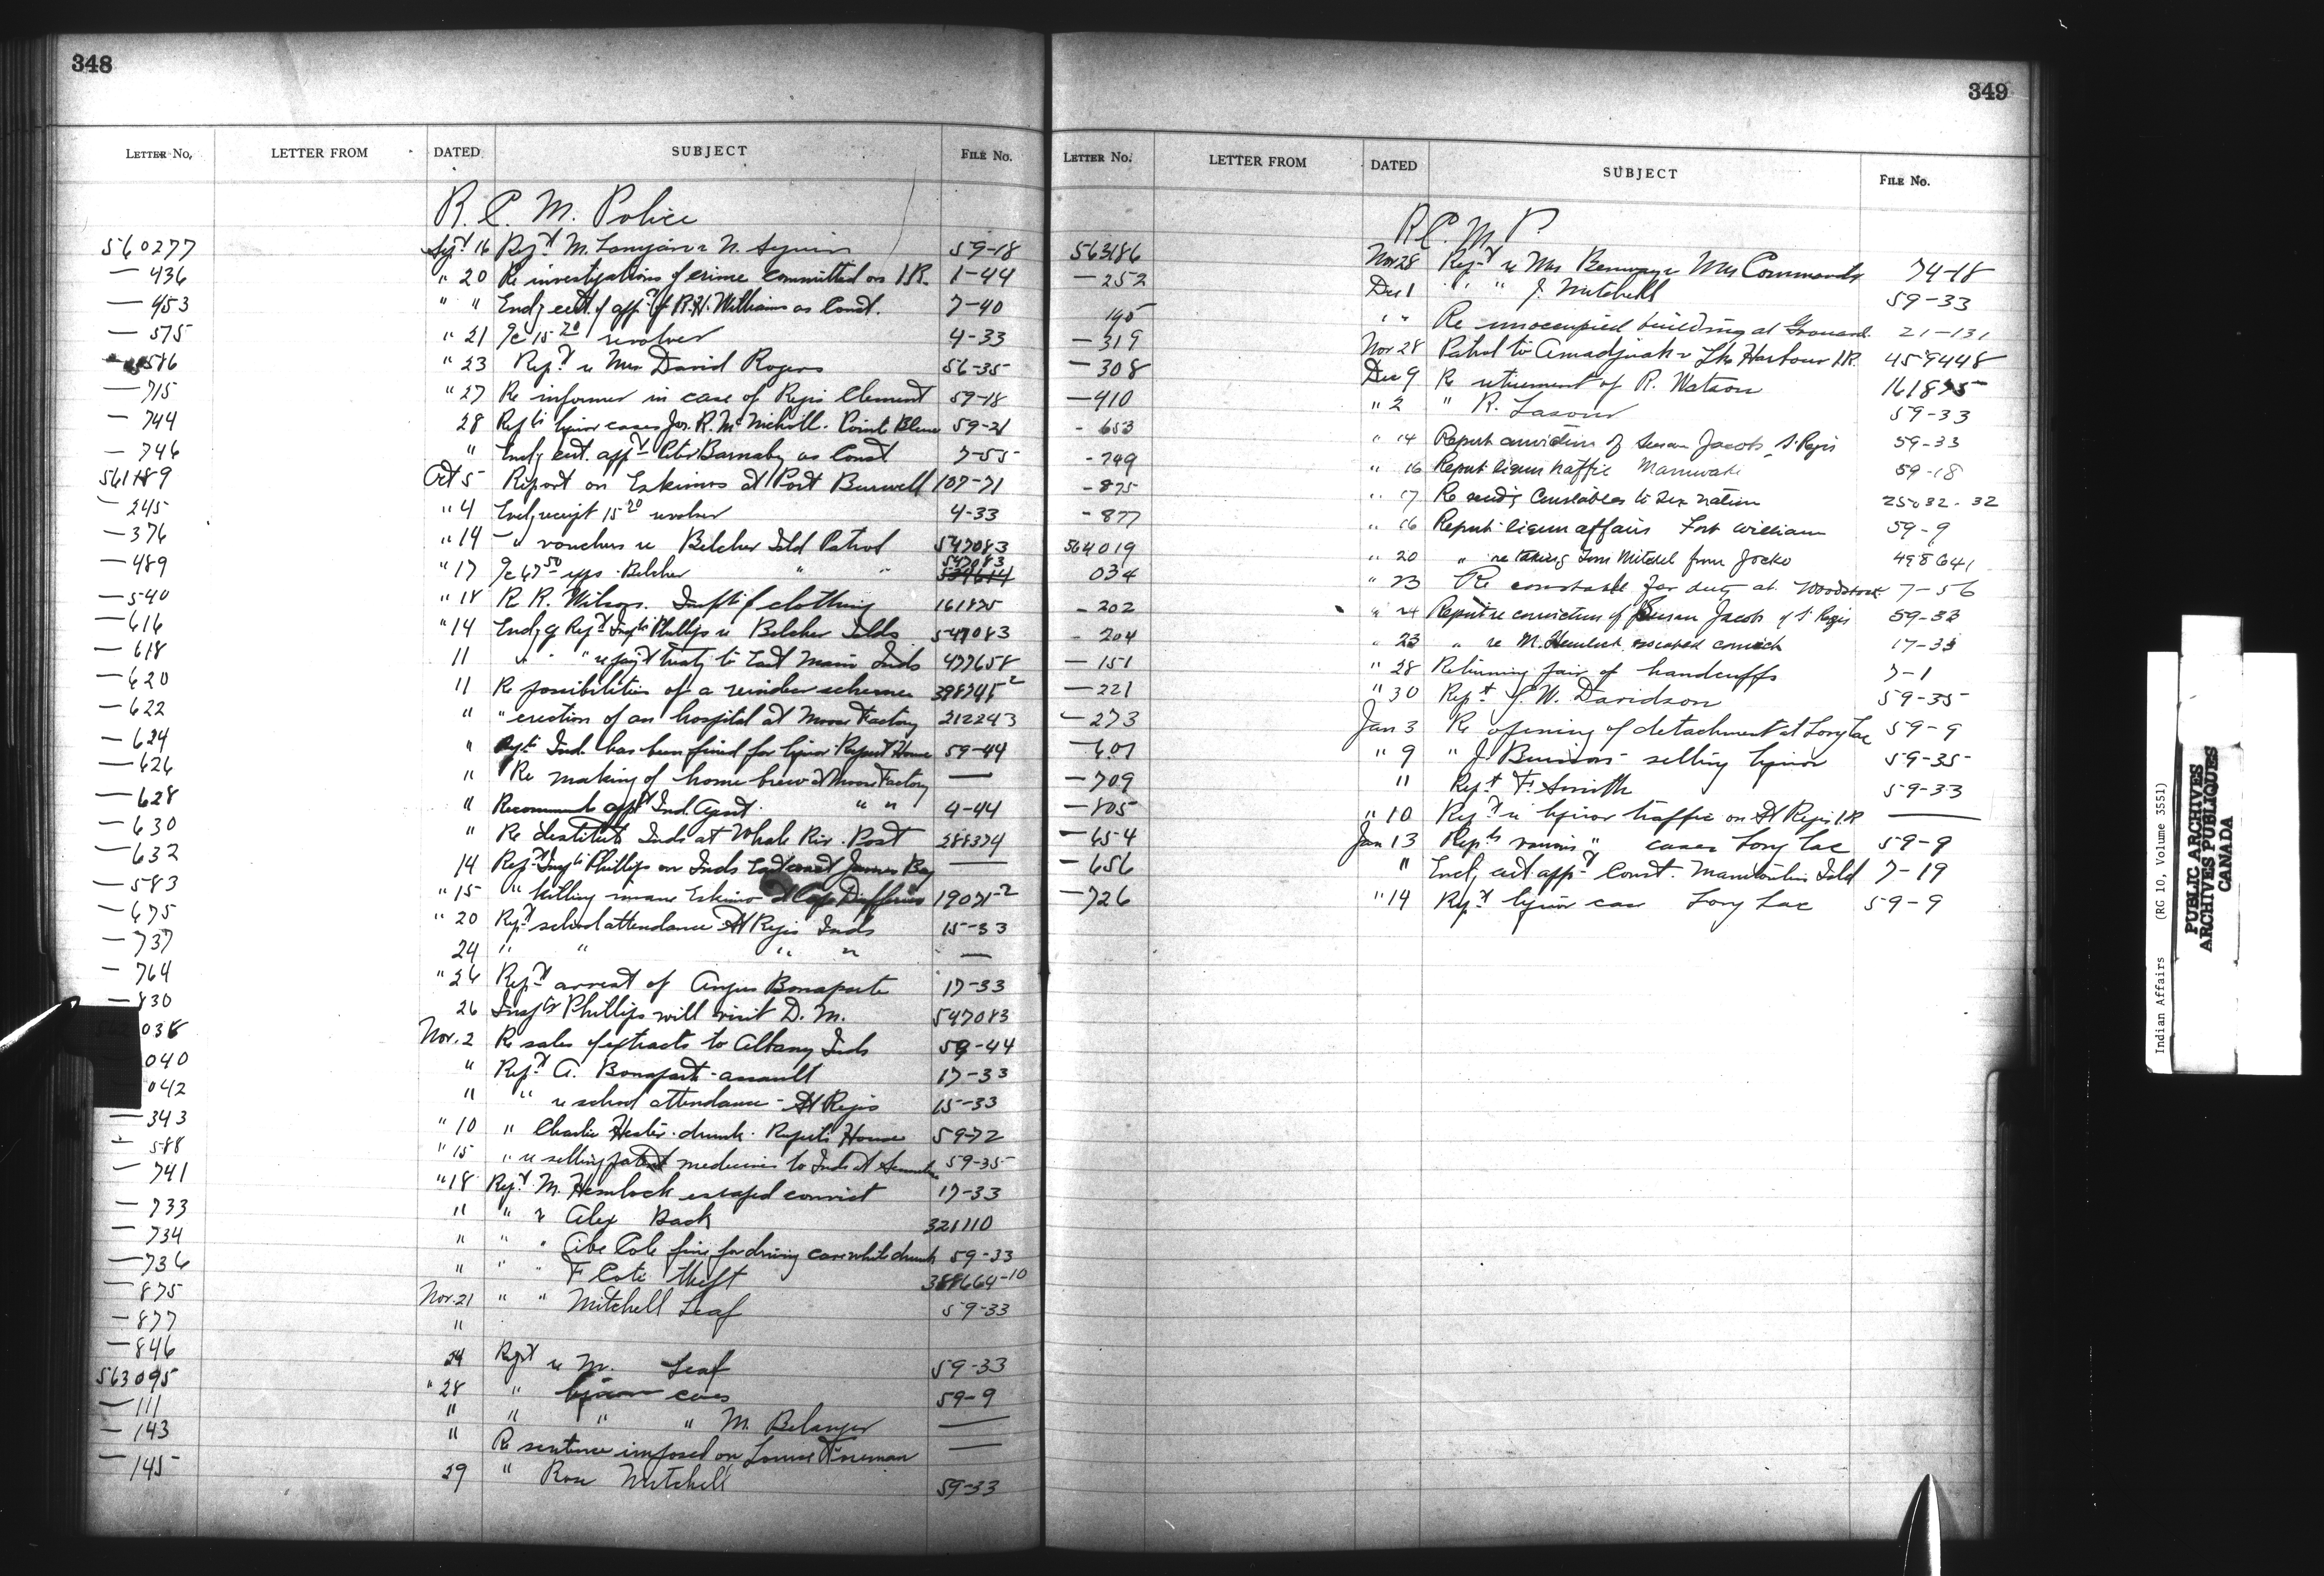 348
LETTER No. LETTER FROM DATED SUBJECT FILE No.
R. C. M. Police
560277 Sept 16 Rept M. N. 59-18
— 436 " 20 Re investigations of crime committed on I.R. 1-44
— 453 " " Encl'g cert. of app't of R.H. Williams as Const. 7-40
— 575 " 21 15 20 revolver 4-33
— 586 " 23 Rept re Mrs David Rogers 56-35
— 715 " 27 Re informer in case of Regis Clement 59-18
— 744 28 Repts liquor cases Jos. R. McNicholl. Pointe Bleue 59-21
— 746 " Encl'g cert. appt Barnaby as Const 7-55
561189 Oct 5 Report on Eskimos at Port Burwell 107-71
— 245 " 4 Encl'g receipt 15 20 revolver 4-33
— 376 " 14 — " vouchers re Belcher Isld Patrol 547083
— 489 " 17 67 50 exps. Belcher " " 547083
— 540 " 18 Re R. Wilson. of clothing 161875
— 616 " 14 Encl'g Rept Insptr Phillips re Belcher Islds 547083
— 618 11 " " " re pay't treaty to East Main Inds 477658
— 620 11 Re possibilities of a reindeer scheme 398745 2
— 622 " " erection of an hospital at Moose Factory 212243
— 624 " Ind. has been fined for liquor Rupert House 59-44
— 626 " Re making of home brew at Moose Factory —
— 628 " Recommends appt Ind. Agent. " " 4-44
— 630 " Re destitute Inds at Whale Riv. Post 288374
— 632 14 Rept Insptr Phillips on Inds East coast James Bay —
— 583 " 15 " killing insane Eskimo at Cape Dufferin 19071-2
— 675 " 20 Rept school attendance St Regis Inds 15-33
— 737 24 " " " " —
— 764 " 26 Rept arrest of Angus Bonaparte 17-33
— 830 26 Insptr Phillips will visit D. M. 547083
038 Nov. 2 Re sales of extracts to Albany Inds 59-44
040 " Rept A. Bonaparte - assault 17-33
042 " " re school attendance - St Regis 15-33
— 343 " 10 " Charlie Hester. drunk. Rupert's House 59-72
— 588 " 15 " re selling patent medicines to Inds at 59-35
— 741 " 18 Rept M. Hemlock escaped convict 17-33
— 733 " " " Alex Back 321110
— 734 " " " Abe Cole fine for driving car while drunk 59-33
— 736 " " " F Cote theft 388664-10
— 875 Nov. 21 " " Mitchell Leaf 59-33
— 877 "
— 846 24 Rept re M. Leaf 59-33
563095 " 28 " liquor cases 59-9
— 111 " " " " M. Belanger —
— 143 " Re sentence imposed on Louise Foreman —
— 145 29 " Rose Mitchell 59-33
349
LETTER No. LETTER FROM DATED SUBJECT FILE No.
R. C. M. P.
563186 Nov 28 Rept re Mrs Benway & Mrs Commando 74-18
— 252 Dec 1 " " J. Mitchell 59-33
195 " " Re unoccupied building at Grouard. 21-131
— 319 Nov 28 Patrol to Amadjuak & Lke Harbour I.R. 459448
— 308 Dec 9 Re retirement of R. Watson 161875
— 410 " 2 " R. 59-33
- 653 " 14 Report conviction of Susan Jacobs St Regis 59-33
- 749 " 16 Report liquor traffic Maniwaki 59-18
- 875 " 17 Re send'g Constables to Six nation 25032-32
- 877 " 16 Report liquor affairs Fort William 59-9
564019 " 20 " re taking Tom Mitchel from Jocko 498641
034 " 23 Re constable for duty at Woodstock 7-56
- 202 " 24 Report re conviction of Susan Jacob of St Regis 59-33
- 204 " 23 " re M. Hemlock escaped convict 17-33
— 151 " 28 Returning pair of handcuffs 7-1
— 221 " 30 Rept J. W. Davidson 59-35
— 273 Jan 3 Re opening of detachment at Long Lac 59-9
— 607 " 9 " J. selling liquor 59-35
— 709 " Rept F. Smith 59-33
— 805 " 10 Rept re liquor traffic on St Regis I.R. —
— 654 Jan 13 Repts various " cases Long Lac 59-9
— 656 " Encl'g cert appt Const. Manitoulin Isld 7-19
— 726 " 14 Rept liquor case Long Lac 59-9
Indian Affairs (RG 10, Volume 3551)
PUBLIC ARCHIVES
ARCHIVES PUBLIQUES
CANADA